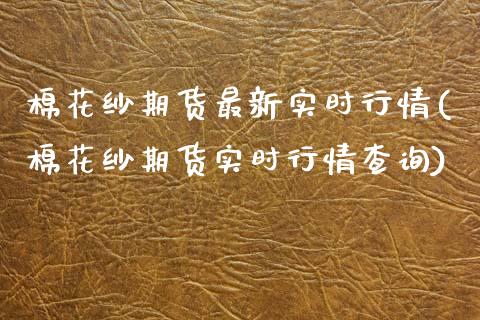 棉花纱期货最新实时行情(
棉花纱期货实时行情查询)